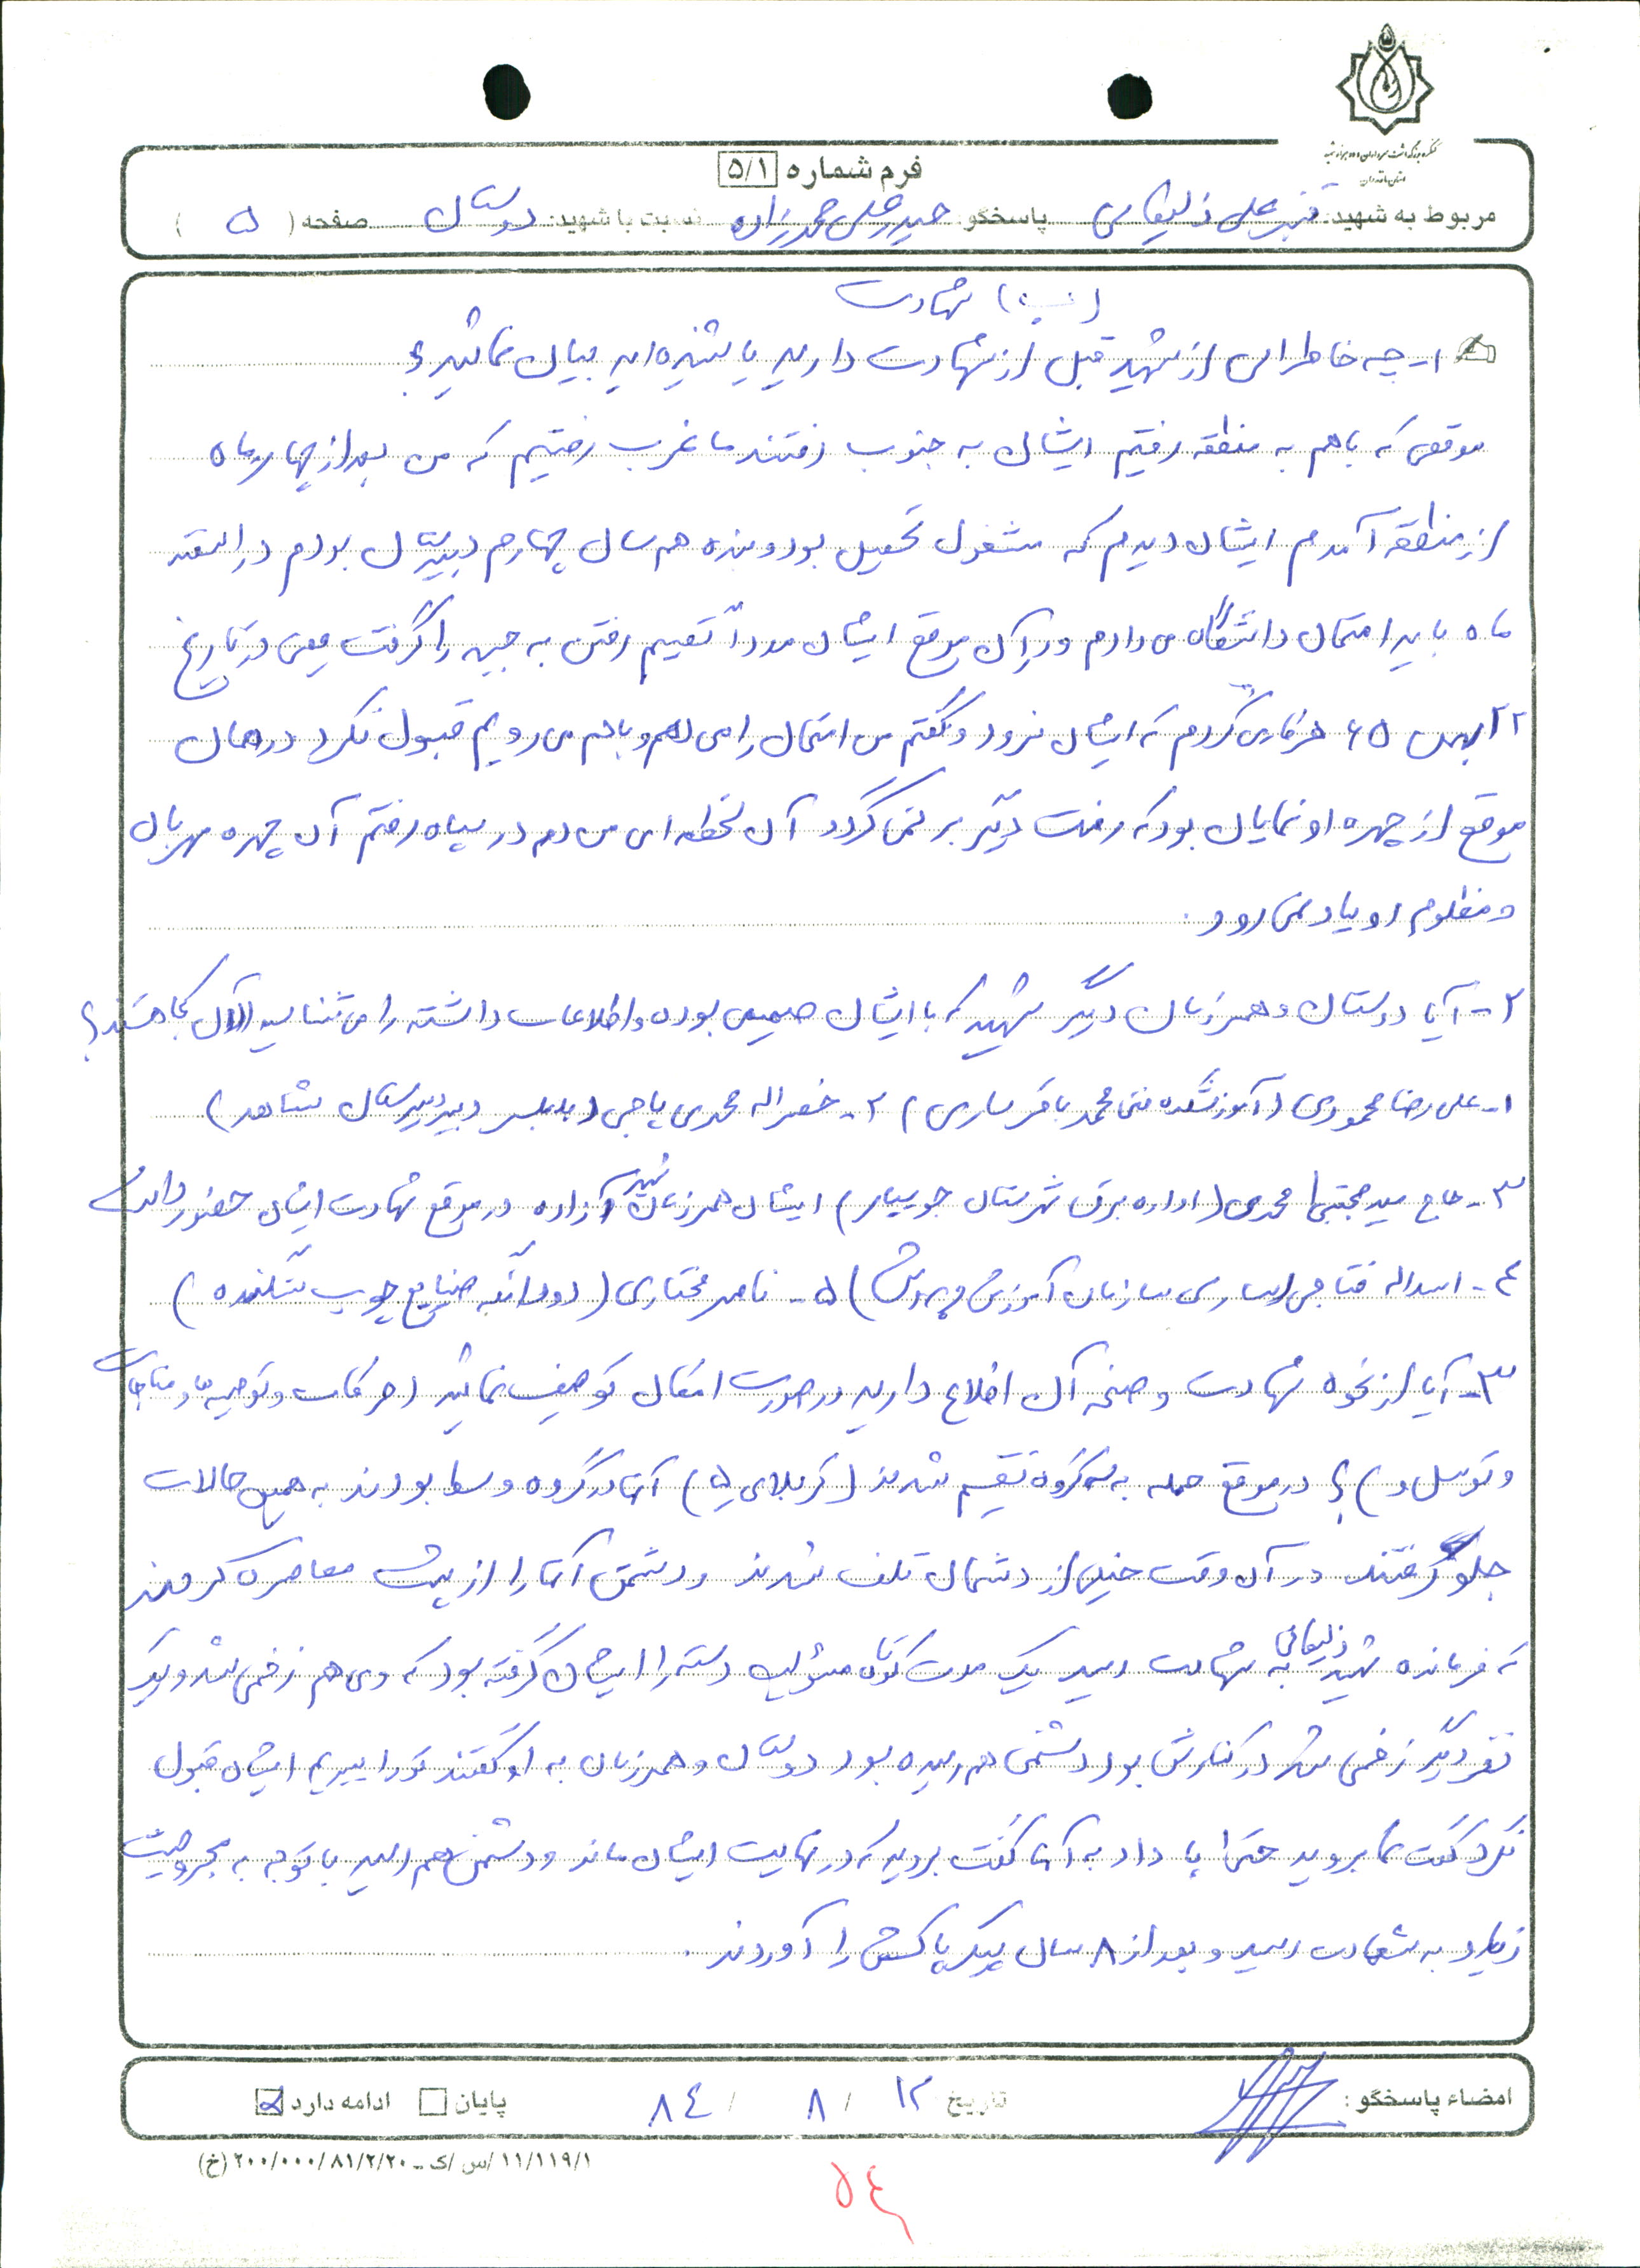 کنگره بزرگداشت سرداران و ده هزار شهید
استان مازندران
فرم شماره ۵/۱
مربوط به شهید: قنبر علی ذلیکانی پاسخگو: حیدر علی محمدزاده نسبت با شهید: دوستان صفحه ( ۵ )
(ب) شهادت
۱- چه خاطراتی از شهید قبل از شهادت دارید یا شنیده اید بیان نمائید؟
موقعی که باهم به منطقه رفتیم ایشان به جنوب رفتند ما غرب رفتیم که من بعد از چهار ماه
از منطقه آمدم ایشان دیدم که مشغول تحصیل بود و بنده هم سال چهارم دبیرستان بودم در اسفند
ماه باید امتحان دانشگاه می دادم در آن موقع ایشان مدرداً تصمیم رفتن به جبهه را گرفت یعنی در تاریخ
۲۲ بهمن ۶۵ هر کاری کردم که ایشان نرود و گفتم من امتحان را می دهم و باهم می رویم قبول نکرد در همان
موقع از چهره او نمایان بود که رفت دیگر بر نمی گردد آن لحظه ای من دم در سپاه رفتم آن چهره مهربان
و مظلوم او یاد نمی رود.
۲- آیا دوستان و همرزمان دیگر شهید که با ایشان صمیمی بوده و اطلاعات داشته را می شناسید الان کجا هستند؟
۱- علی رضا محمودی (آموزشکده فنی محمد باقر ساری) ۲- خضراله محمدی یاجی (بابلسر دبیر دبیرستان شاهد)
۳- حاج سید مجتبی محمدی (اداره برق شهرستان جویبار) ایشان همرزمان شهید آزاده در موقع شهادت ایشان حضور داشت
۴- اسداله فتاحی (ساری سازمان آموزش و پرورش) ۵- ناصر مختاری (دودانگه صنایع چوب)
۳- آیا از نحوه شهادت و صحنه آن اطلاع دارید در صورت امکان توصیف نمائید (حرکات و توصیه ها و مناجات
و توسل و) ؟ در موقع حمله به سه گروه تقسیم شدند (کربلای ۵) آنها در گروه وسط بودند به همین حالات
جلو رفتند در آن وقت خیلی از دشمنان تلف شدند و دشمن آنها را از پشت محاصره کردند
که فرمانده شهید ذلیکانی به شهادت رسید یک مدت کوتاه مسئولیت دسته را ایشان گرفته بود که وی هم زخمی شد و یک
نفر دیگر زخمی شد در کنارش بود دشمن هم رسیده بود دوستان و همرزمان به او گفتند تو را ببریم ایشان قبول
نکرد گفت شما بروید حتی پا داد به آنها گفت بروید که در نهایت ایشان ماند و دشمن هم رسید با توجه به مجروحیت
زیاد به شهادت رسید و بعد از ۸ سال پیکر پاکش را آوردند.
امضاء پاسخگو: تاریخ ۱۲ / ۸ / ۸۴ پایان ادامه دارد
۱۱/۱۱۹/۱/س/ک - ۲۰۰/۰۰۰/۸۱/۲/۲۰ (خ)
۵۴